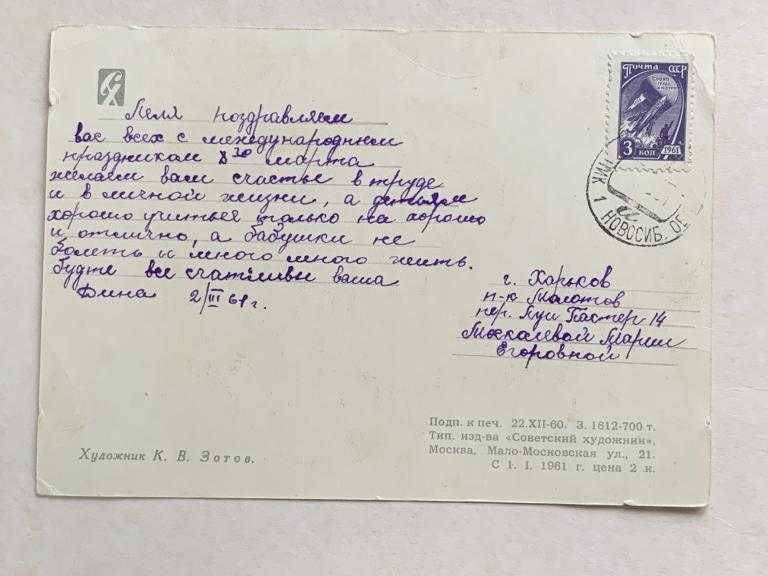 Леля поздравляем
вас всех с международным
праздником 8го марта
желаем вам счастье в труде
и в личной жизни, а детям
хорошо учиться только на хорошо
и отлично, а бабушки не
болеть и много много жить.
будте все счатливы ваша
Дина 2/III 61 г.
ПОЧТА СССР
3 КОП 1961
НИК 1 НОВОСИБ. ОБ
г. Харьков
п-к Молотов
пер. Луи Пастер 14
Москалевой Марии
Егоровной
Художник К. В. Зотов.
Подп. к печ. 22.XII-60. З. 1612-700 т.
Тип. изд-ва «Советский художник»,
Москва, Мало-Московская ул., 21.
С 1. I. 1961 г. цена 2 к.